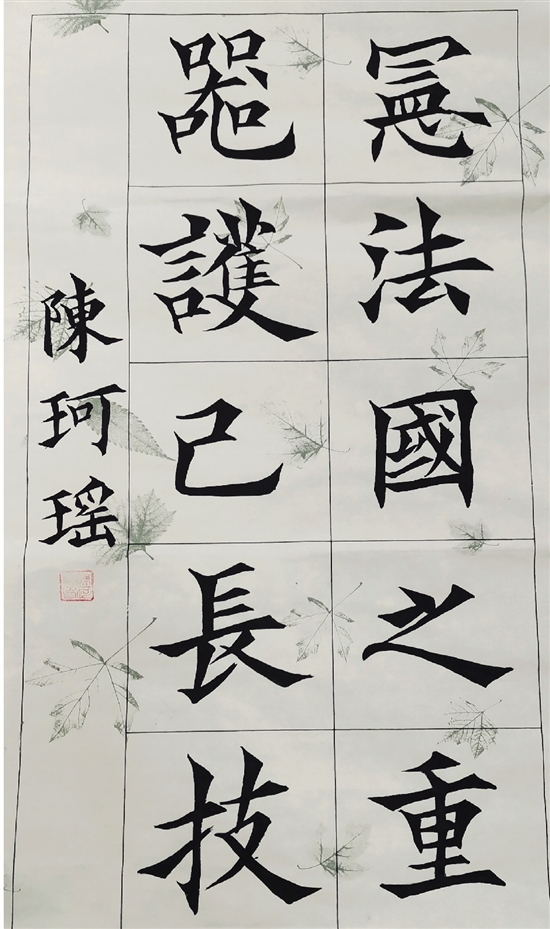 憲法國之重
器護己長技
陳珂瑤